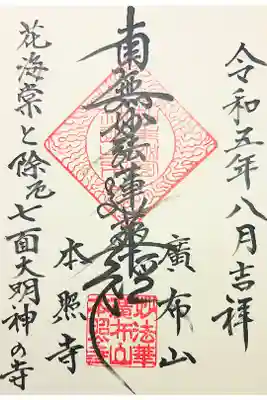 令和五年八月吉祥
廣布山
南無妙法蓮華経
本照寺
花海棠と除厄七面大明神の寺
妙法華
廣布山
本照寺